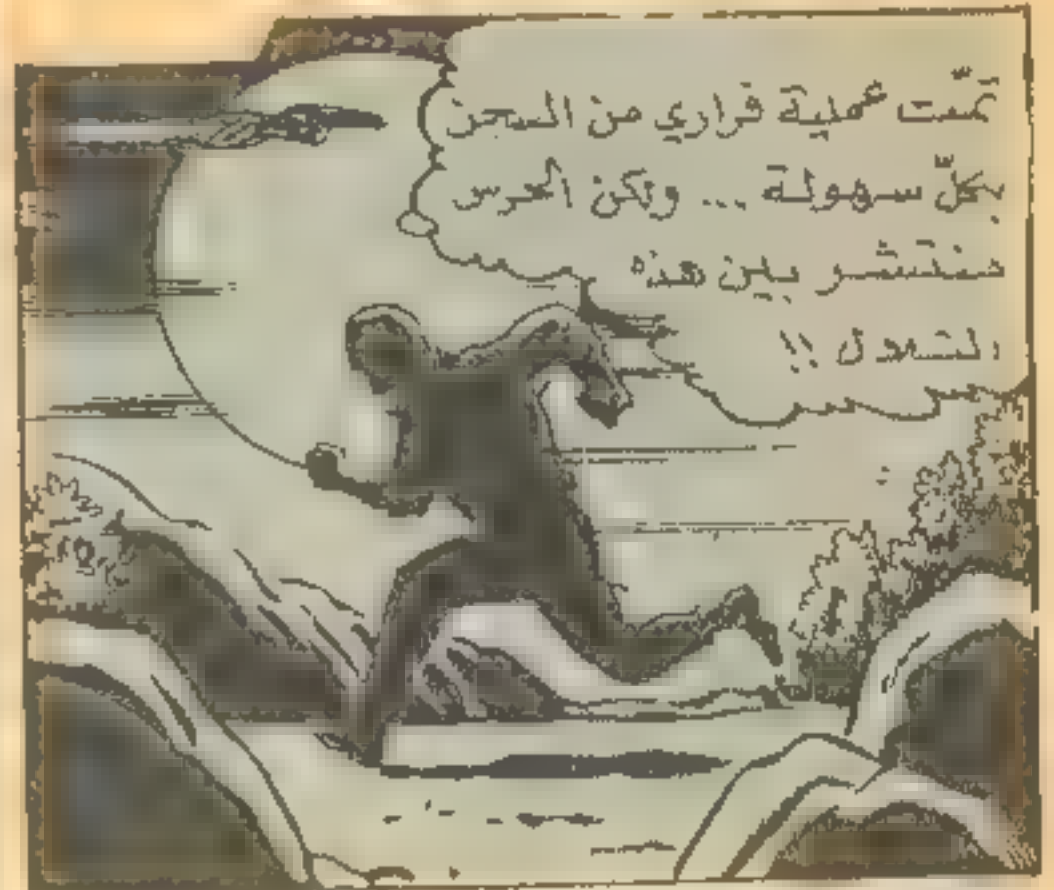 تمّت عملية فراري من السجن
بكلّ سهولة ... ولكن الحرس
منتشر بين هذه
التلال !!